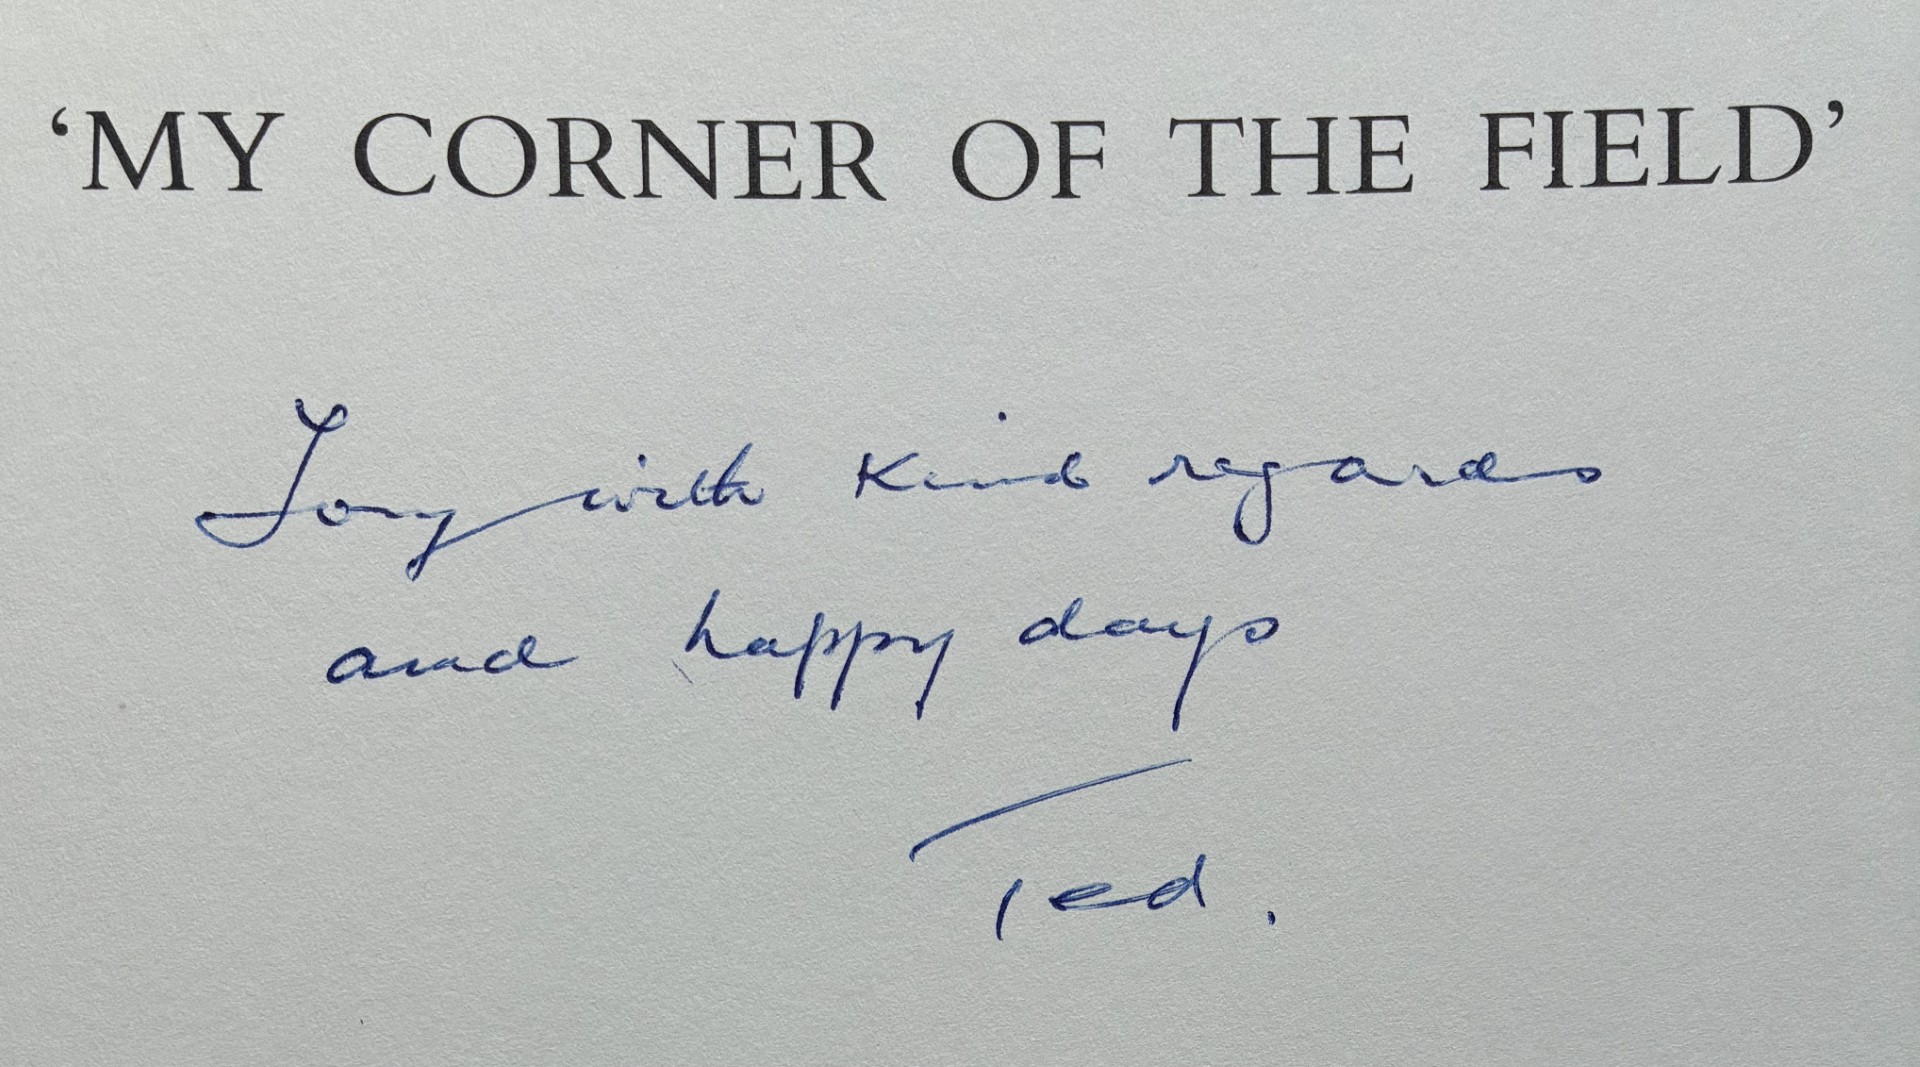 ‘MY CORNER OF THE FIELD’
Tony with kind regards
and happy days
Ted.